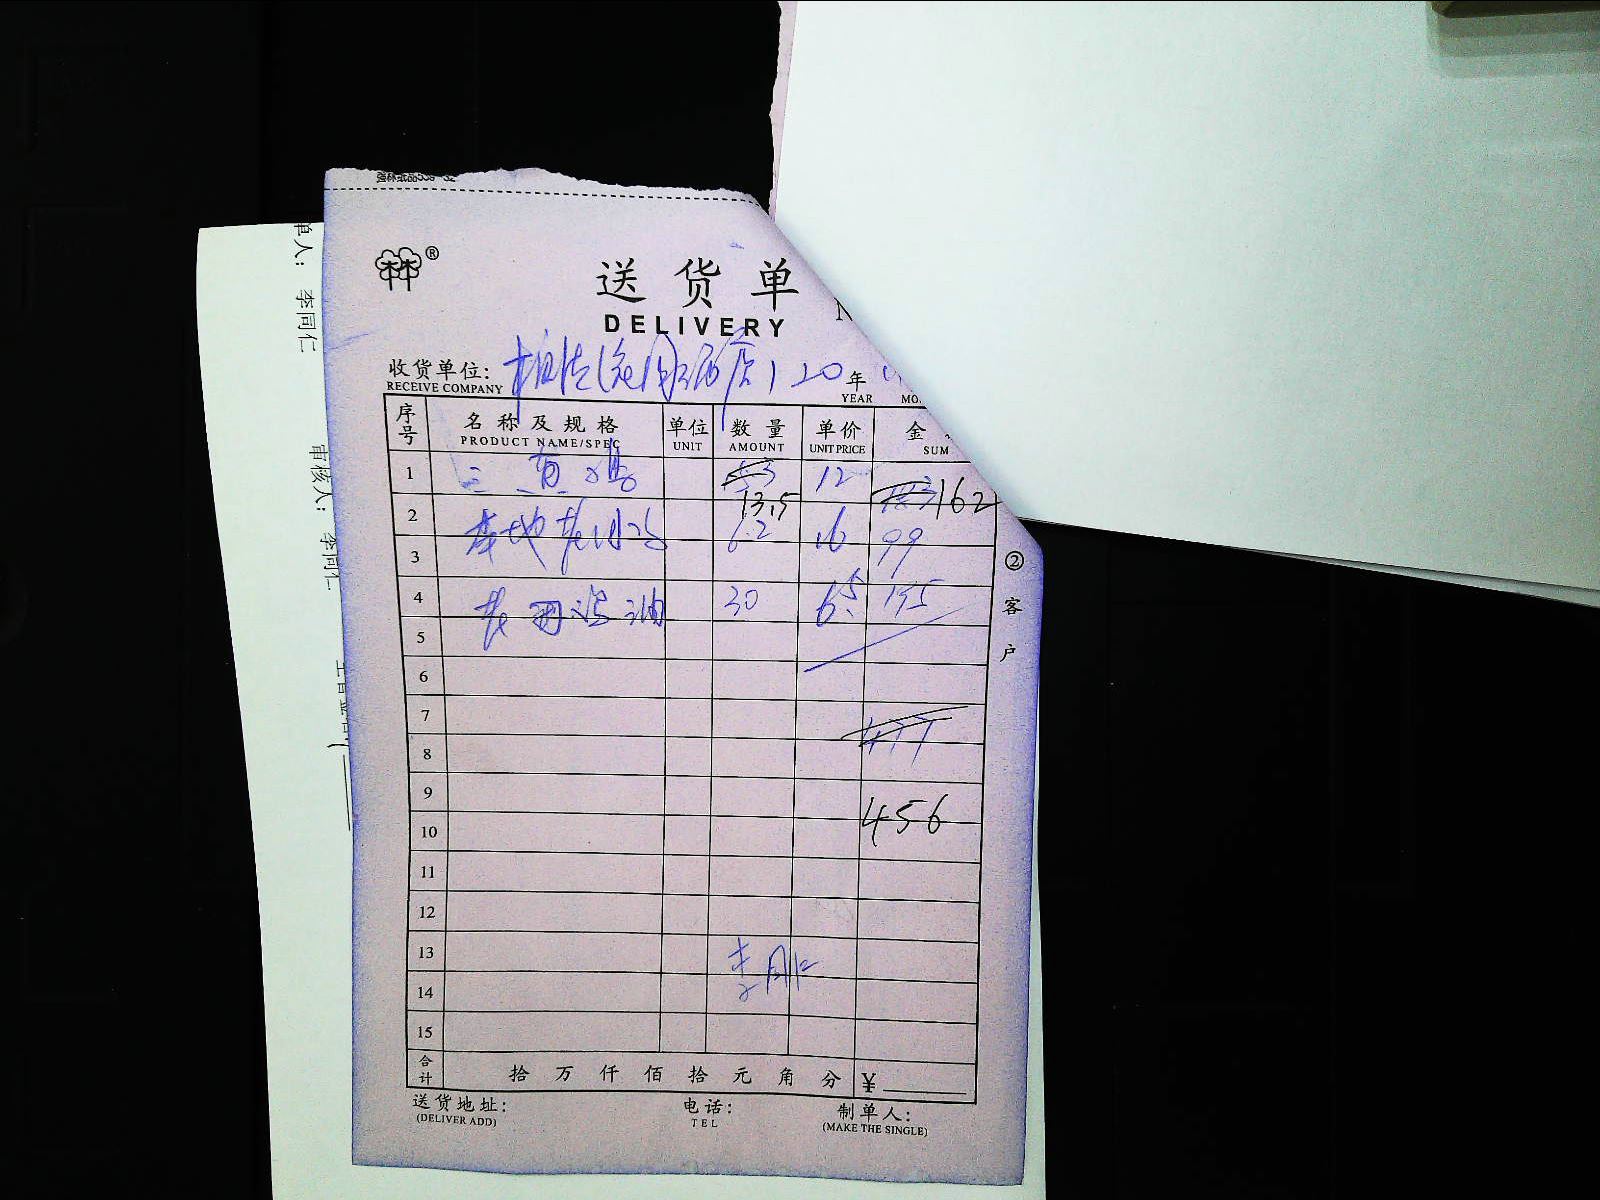 林®
送货单
DELIVERY
收货单位: 20年
RECEIVE COMPANY YEAR MO
序号 名称及规格 单位 数量 单价 金
PRODUCT NAME/SPEC UNIT AMOUNT UNIT PRICE SUM
1 三黄鸡 12 162
13.5
2 本地 6.2 16 99
3
4 30 6.5 195
5
6
7 477
8
9
456
10
11
12
13 李同仁
14
15
合计 拾 万 仟 佰 拾 元 角 分 ¥
送货地址: 电话: 制单人:
(DELIVER ADD) TEL (MAKE THE SINGLE)
②客户
单人: 李同仁
审核人: 李同仁